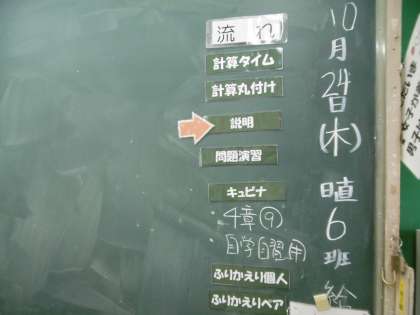 10月24日(木) 日直6班 給
流れ
計算タイム
計算丸付け
説明
問題演習
キュビナ
4章⑨
自学自習用
ふりかえり個人
ふりかえりペア